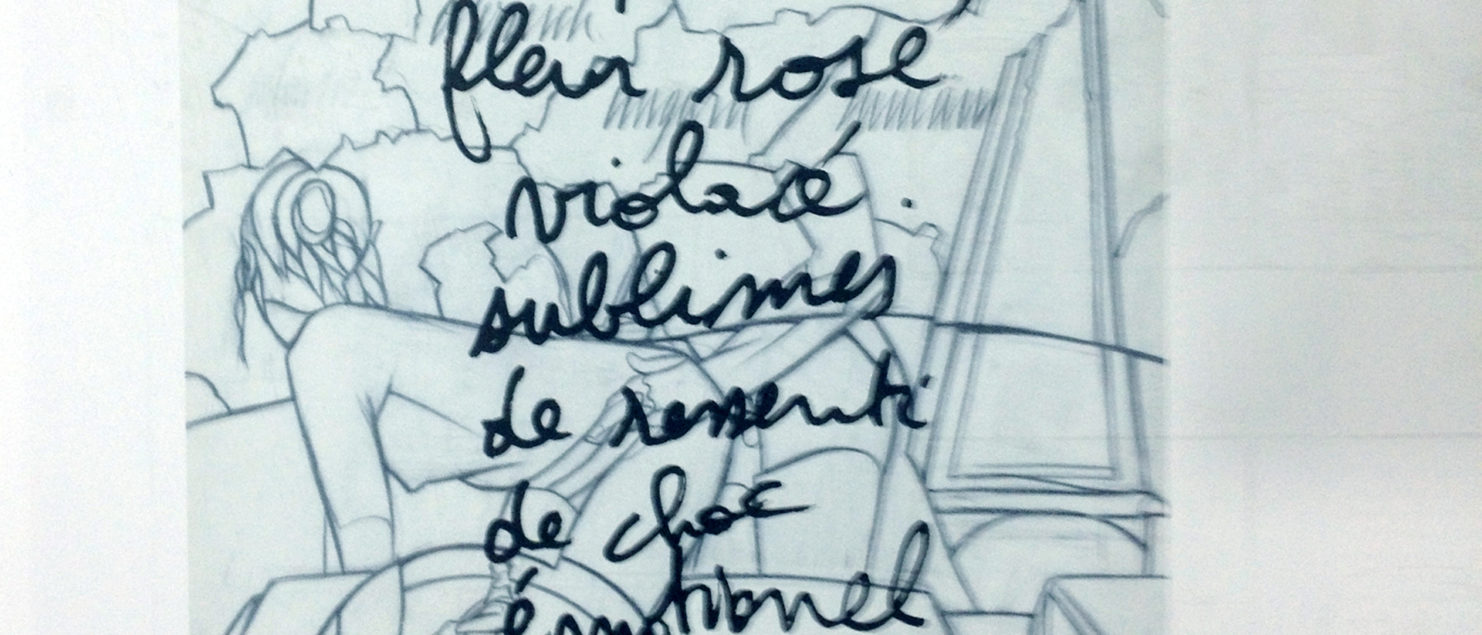 fleur rose
violacé.
sublimes
de ressenti
de choc
émotionnel